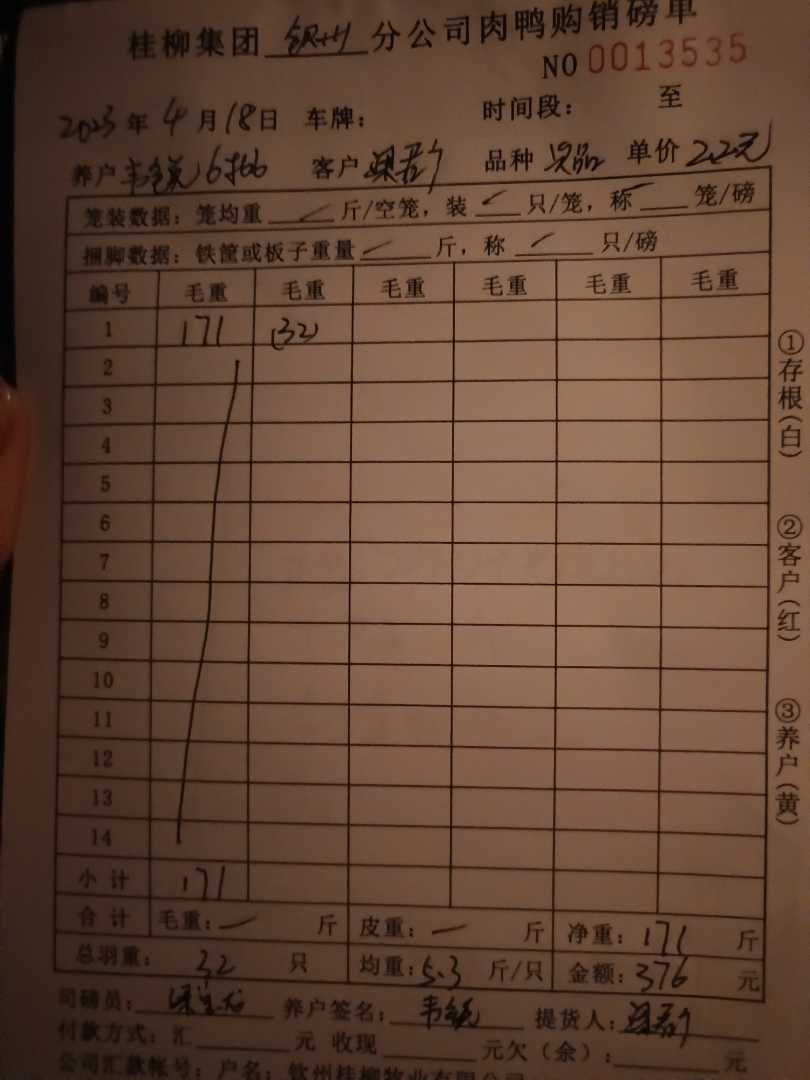 桂柳集团 钦州 分公司肉鸭购销磅单
NO 0013535
2023年4月18日 车牌: 时间段: 至
养户 6366 客户 品种 次品 单价 2.2元
笼装数据: 笼均重 斤/空笼, 装 只/笼, 称 笼/磅
捆脚数据: 铁筐或板子重量 斤, 称 只/磅
编号 毛重 毛重 毛重 毛重 毛重 毛重
1 171 (32)
2
3
4
5
6
7
8
9
10
11
12
13
14
小计 171
合计 毛重: 一 斤 皮重: 一 斤 净重: 171 斤
总羽重: 32 只 均重: 5.3 斤/只 金额: 376 元
司磅员: 养户签名: 提货人:
付款方式: 汇 元 收现 元欠(余): 元
公司汇款帐号: 户名: 钦州桂柳牧业有限公司
①存根(白)
②客户(红)
③养户(黄)